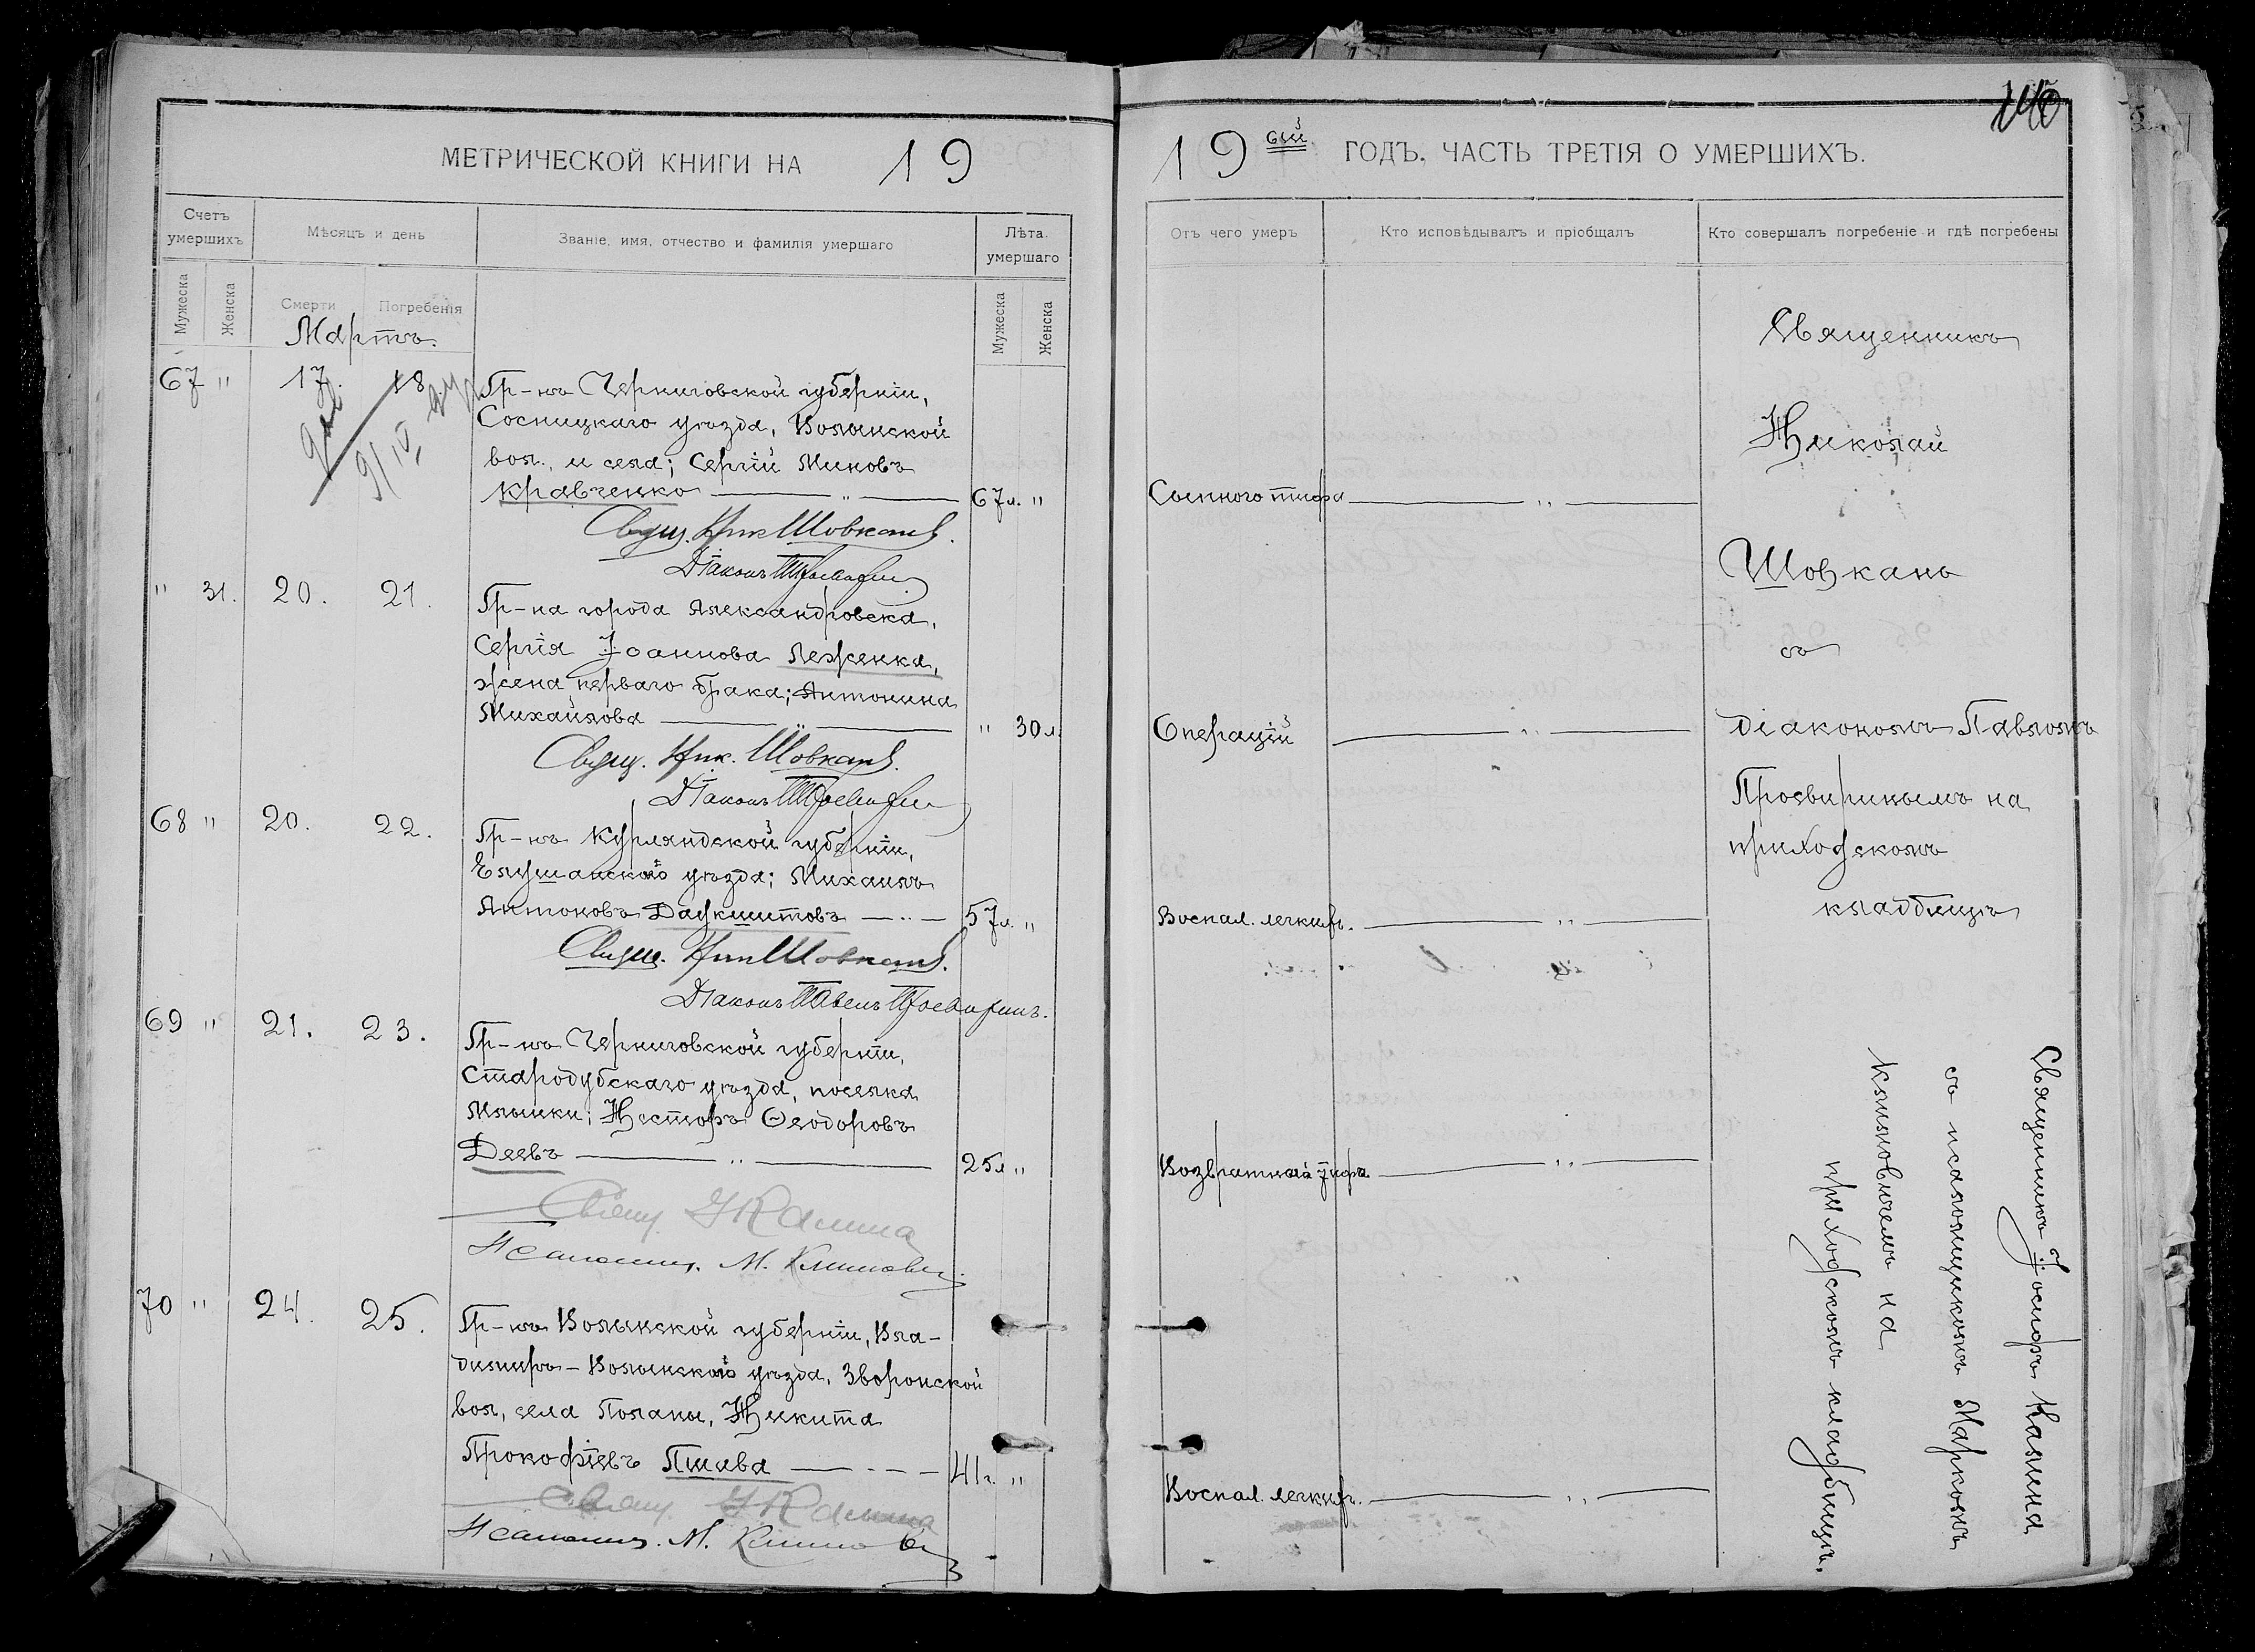 МЕТРИЧЕСКОЙ КНИГИ НА 19
Счетъ умершихъ
Мѣсяцъ и день
Званіе, имя, отчество и фамилія умершаго
Лѣта умершаго
Мужеска
Женска
Смерти
Погребенія
Мужеска
Женска
Мартъ.
67 " 17. 18
9/IV
Гр-нъ Черниговской губерніи,
Сосницкаго уѣзда, Волынской
вол., и села; Сергій Миновъ
Кравченко — " — 67 л. "
Свящ. Ник Шовкань.
Діаконъ Просвирин
" 31. 20. 21.
Гр-на города Александровска,
Сергія Іоаннова Леженка,
жена перваго брака; Антонина
Михайлова — " — " 30 л.
Свящ. Ник. Шовкань.
Діаконъ Просвирин
68 " 20. 22.
Гр-нъ Курляндской губерніи,
уѣзда; Михаилъ
Антоновъ Даукшитовъ — " — 57 л. "
Свящ. Ник Шовкань.
Діаконъ Павелъ Просвиринъ.
69 " 21. 23.
Гр-нъ Черниговской губерніи,
Стародубскаго уѣзда, поселка
Млынки; Несторъ Ѳеодоровъ
Деевъ — " — 25 л "
Свящ. І Калина
Псаломщ. М. Климович
70 " 24. 25.
Гр-нъ Волынской губерніи, Вла-
димиръ-Волынскаго уѣзда, Зворонской
вол, села Поляны, Никита
Прокофіевъ Пшива — " — 41 г. "
Свящ. І Калина
Псаломщ. М. Климович
19 ый ГОДЪ, ЧАСТЬ ТРЕТІЯ О УМЕРШИХЪ.
Отъ чего умеръ
Кто исповѣдывалъ и пріобщалъ
Кто совершалъ погребеніе и гдѣ погребены
Сыпного тифа — " —
Операціи — " —
Воспал. легкихъ. — " —
Возвратный тифъ — " —
Воспал. легкихъ. — " —
Священникъ
Николай
Шовкань
съ
діакономъ Павломъ
Просвиринымъ на
приходскомъ
кладбищѣ
Священникъ Іосифъ Калина
съ псаломщикомъ Маркомъ
Климовичемъ на
приходскомъ кладбищѣ.